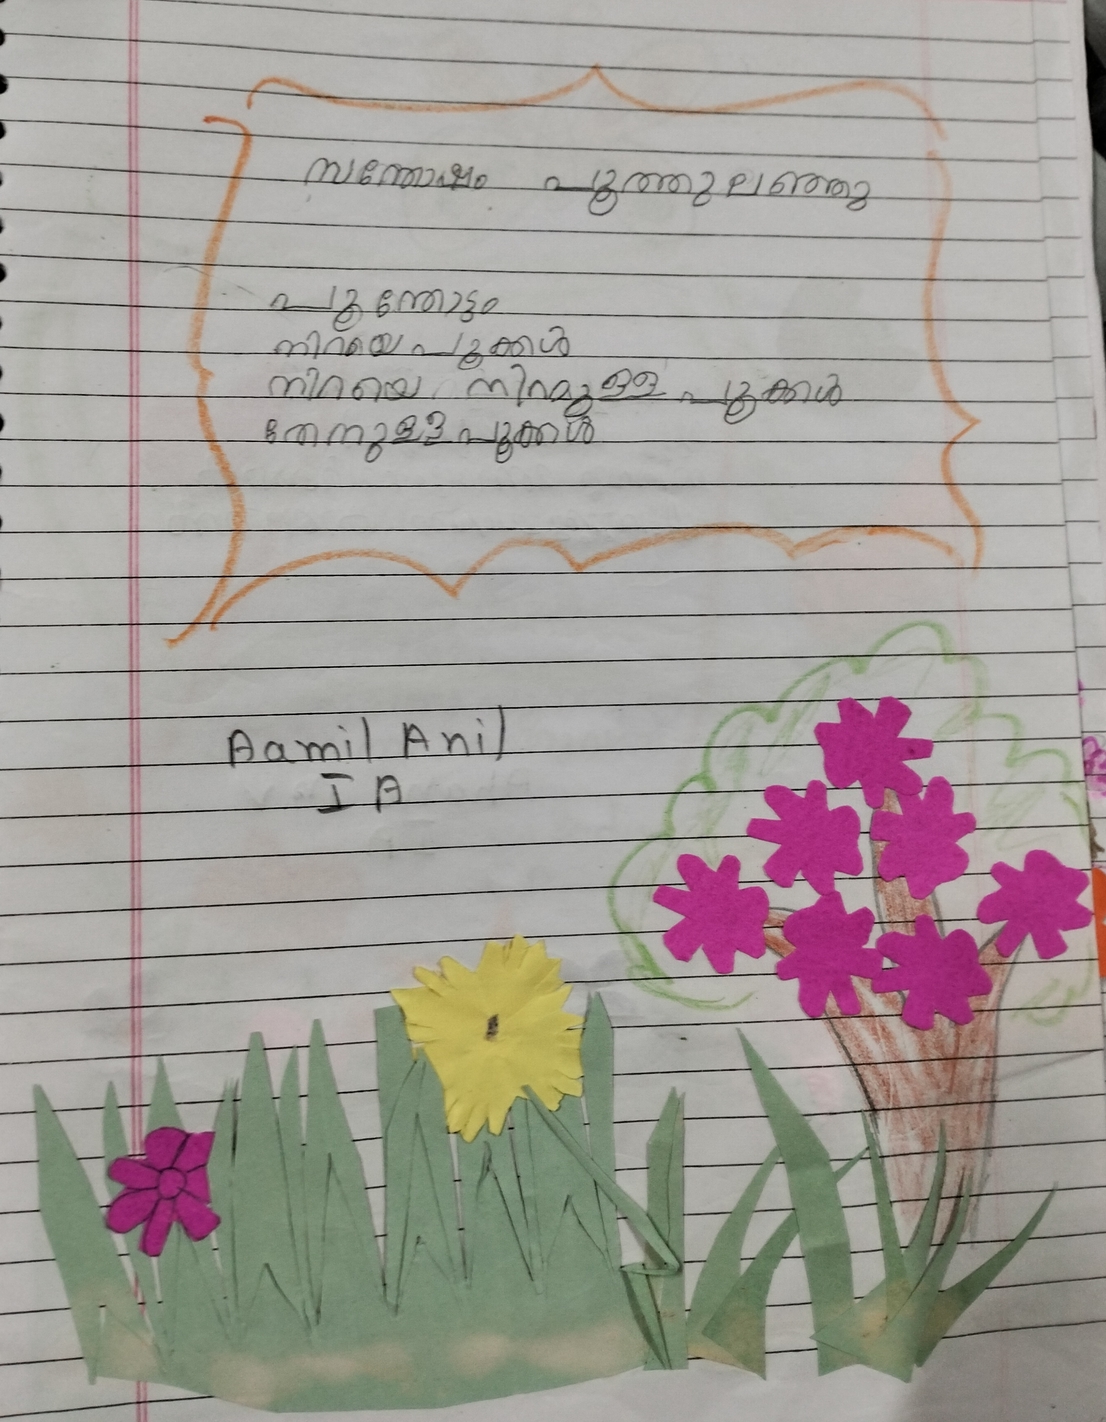 സന്തോഷം പൂത്തുലഞ്ഞു
പൂന്തോട്ടം
നിറയെ പൂക്കൾ
നിറയെ നിറമുള്ള പൂക്കൾ
തേനുള്ള പൂക്കൾ
Aamil Anil
I A